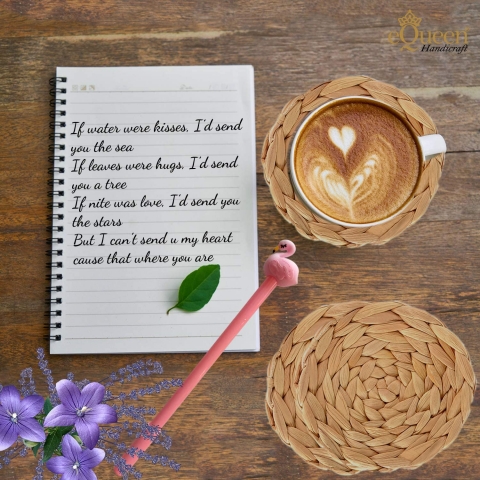 Queen
Handicraft
If water were kisses, I'd send
you the sea
If leaves were hugs, I'd send
you a tree
If nite was love, I'd send you
the stars
But I can't send u my heart
cause that where you are